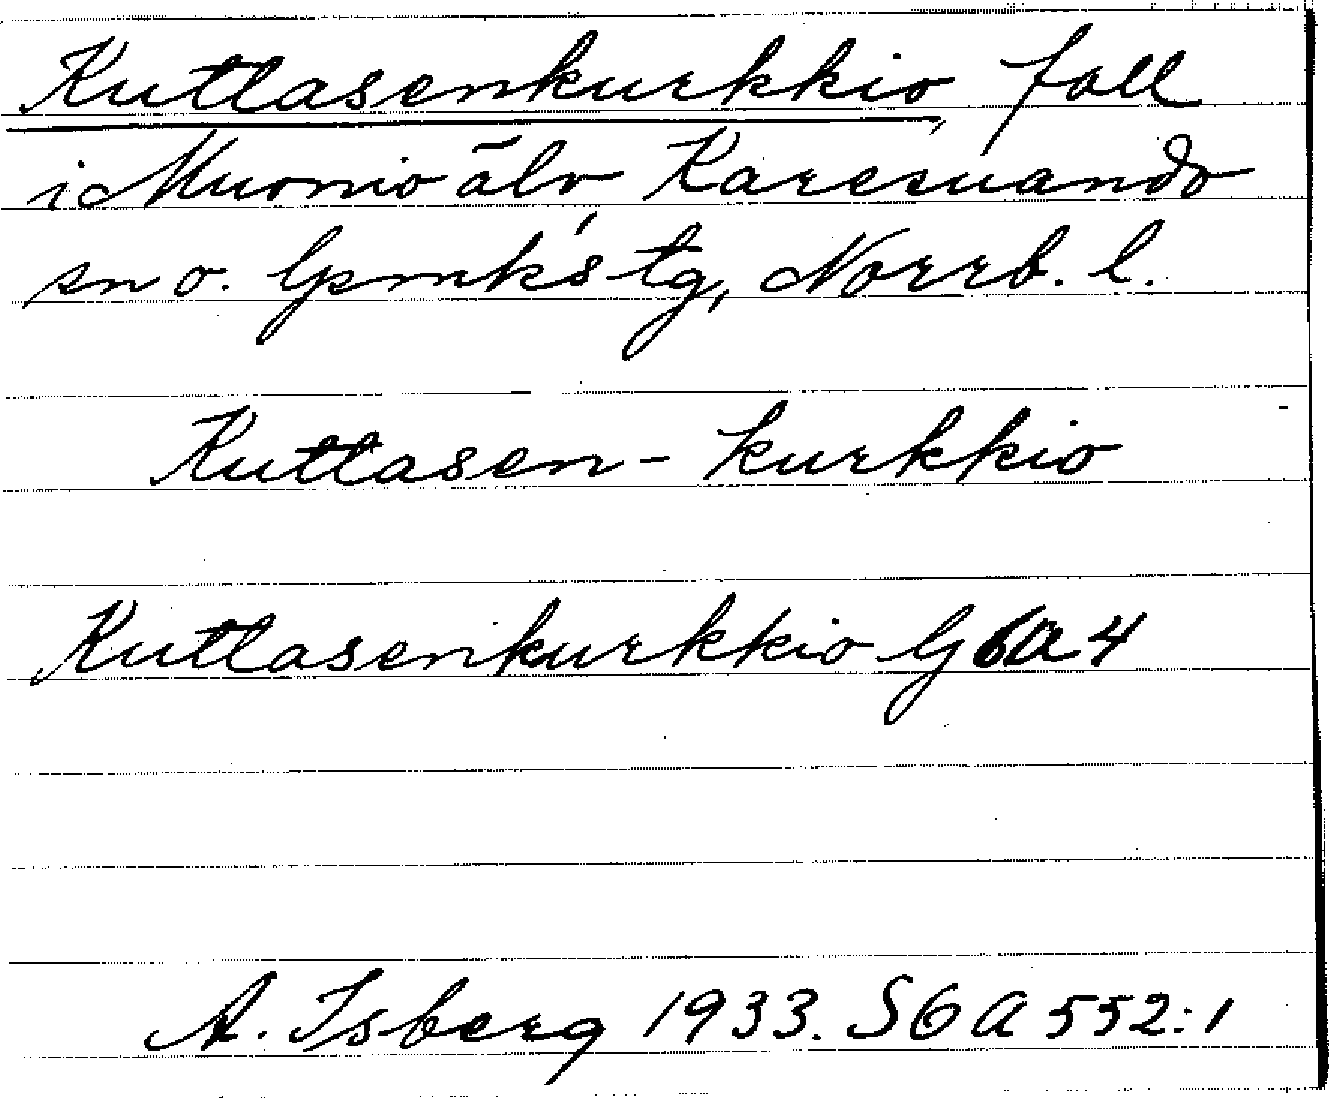 Kuttasenkurkkio, fall
i Muonio älv, Karesuando
sn o. lpmks tg, Norrb. l.
Kuttasen - kurkkio
Kuttasenkurkkio G 6a 4
A. Isberg 1933. S G A 552:1